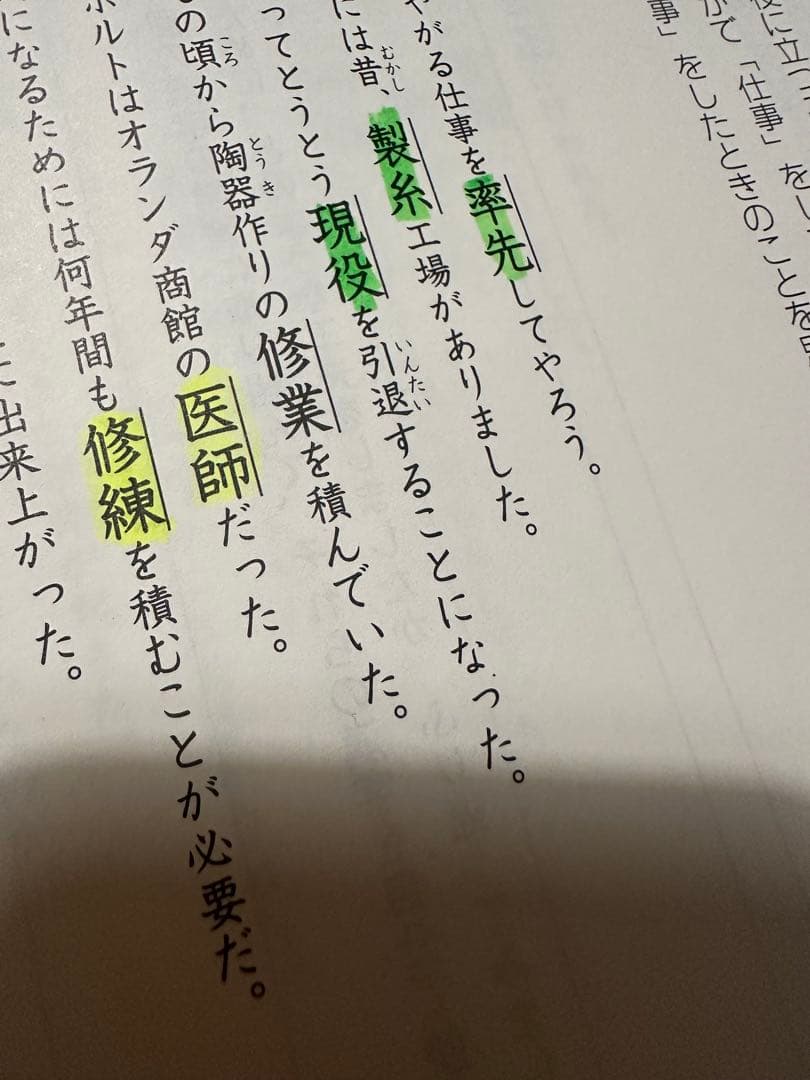 役に立つ
をし
かで「仕事」をしたときのことを
事」
やがる仕事を率先してやろう。
には昔、製糸工場がありました。
むかし
ってとうとう現役を引退することになった。
いんたい
の頃から陶器作りの修業を積んでいた。
ころ
とうき
ボルトはオランダ商館の医師だった。
になるためには何年間も修練を積むことが必要だ。
出来上がった。